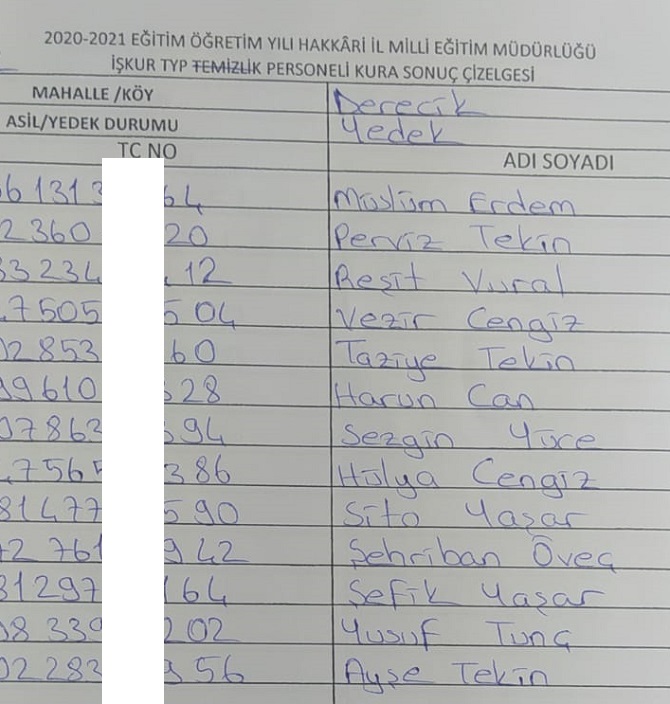 2020-2021 EĞİTİM ÖĞRETİM YILI HAKKÂRİ İL MİLLİ EĞİTİM MÜDÜRLÜĞÜ
İŞKUR TYP TEMİZLİK PERSONELİ KURA SONUÇ ÇİZELGESİ
MAHALLE /KÖY Derecik
ASİL/YEDEK DURUMU Yedek
TC NO ADI SOYADI
61313 64 Müslüm Erdem
2360 20 Perviz Tekin
33234 12 Reşit Vural
7505 504 Vezir Cengiz
02853 60 Taziye Tekin
99610 28 Harun Can
07862 94 Sezgin Yüce
7565 386 Hülya Cengiz
81477 590 Sito Yaşar
2761 942 Şehriban Öveç
31297 164 Şefik Yaşar
08339 202 Yusuf Tunç
02282 356 Ayşe Tekin